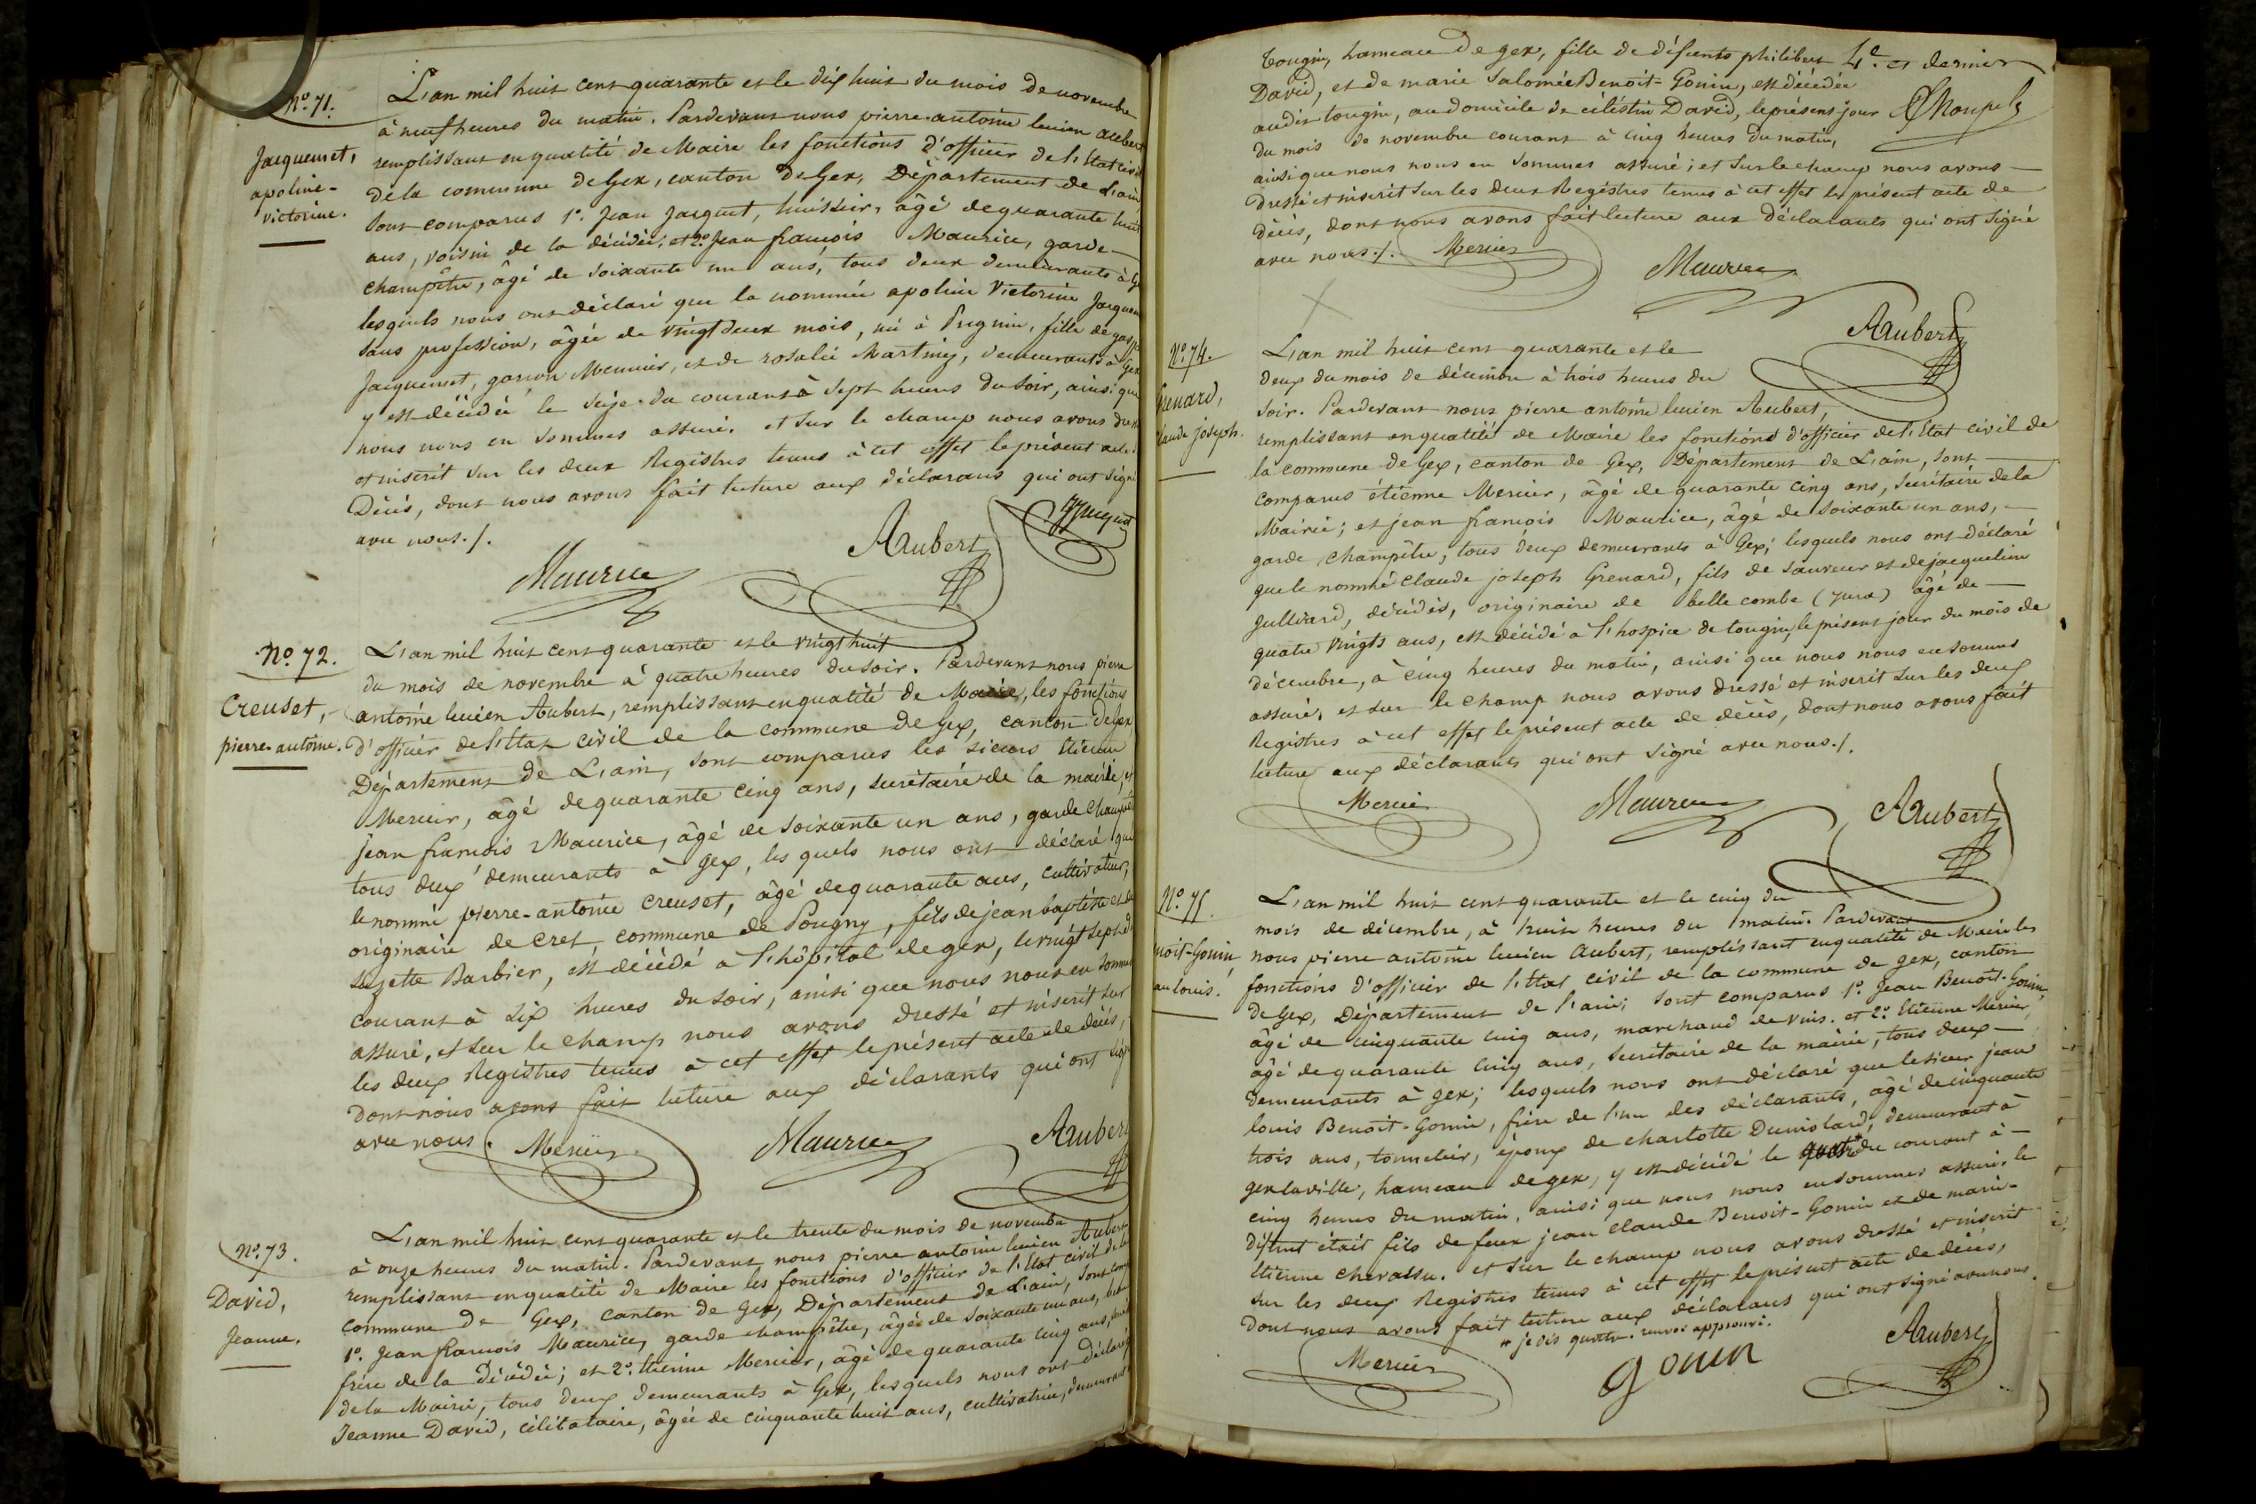 No. 71.
Jacquemet,
apoline-
victorine.
L'an mil huit cent quarante et le dix huit du mois de novembre
à neuf heures du matin. Pardevant nous pierre-antoine lucien aubert
remplissant en qualité de Maire les fonctions d'officier de l'Etat civil
de la commune de Gex, canton de Gex, Département de L'ain
sont comparus 1o. Jean Jacquet, huissier, âgé de quarante huit
ans, voisin de la décédée; et 2o. Jean françois Maurice, garde-
champêtre, âgé de soixante un ans, tous deux demeurants à G
lesquels nous ont déclaré que la nommée apoline Victorine Jacquem
sans profession, âgée de vingt deux mois, né à Pregnin, fille de
Jacquemet, garçon Meunier, et de rosalie Martiney, demeurants à Gex
y est décédée le seize du courant à sept heures du soir, ainsi que
nous nous en sommes assuré. et sur le champ nous avons dressé
et inscrit sur les deux Registres tenus à cet effet le présent acte
Décès, dont nous avons fait lecture aux déclarans qui ont signé
avec nous./.
Maurice
Aubert
Jacquet
No. 72.
Creuset,
pierre-antoine.
L'an mil huit cent quarante et le vingt huit
du mois de novembre à quatre heures du soir. Pardevant nous pierre
antoine lucien Aubert, remplissant en qualité de Maire, les fonctions
d'officier de l'Etat civil de la commune de Gex, canton de Gex,
Département de L'ain, sont comparus les sieurs Etienne
Mercier, âgé de quarante cinq ans, secrétaire de la mairie, et
jean françois Maurice, âgé de soixante un ans, garde champêt
tous deux demeurants à Gex, les quels nous ont déclaré que
le nommé pierre-antoine Creuset, âgé de quarante ans, cultivateur,
originaire de Cret, commune de Pougny, fils de jean baptiste et de
suzette Barbier, est décédé à l'hôpital de gex, le vingt sept d
courant à six heures du soir, ainsi que nous nous en somme
assuré, et sur le champ nous avons dressé et inscrit sur
les deux Registres tenus à cet effet le présent acte de décès,
dont nous avons fait lecture aux déclarants qui ont sign
avec nous.
Mercier
Maurice
Aubert
No. 73.
David,
Jeanne.
L'an mil huit cent quarante et le trente du mois de novembre
à onze heures du matin. Pardevant nous pierre antoine lucien Aubert
remplissant en qualité de Maire les fonctions d'officier de l'Etat civil de la
commune de Gex, canton de Gex, Département de L'ain, sont comp
1o. Jean françois Maurice, garde champêtre, âgé de soixante un ans,
frère de la Décédée; et 2o. Etienne Mercier, âgé de quarante cinq ans,
de la Mairie, tous deux demeurants à Gex, lesquels nous ont déclaré
Jeanne David, célibataire, âgée de cinquante huit ans, cultivatrice, demeurant
Tougin, hameau de gex, fille de défunts philibert
David, et de marie Salomée Benoit-Gonin, est décédée
audit tougin, au domicile de célestin David, le présent jour
du mois de novembre courant à cinq heures du matin,
ainsi que nous nous en sommes assuré; et sur le champ nous avons
dressé et inscrit sur les deux Registres tenus à cet effet le présent acte de
décès, dont nous avons fait lecture aux déclarants qui ont signé
avec nous./.
4e. et dernier
Mercier
Maurice
Aubert
No. 74.
Grenard,
laude joseph.
L'an mil huit cent quarante et le
deux du mois de décembre à trois heures du
soir. Pardevant nous pierre antoine lucien Aubert,
remplissant en qualité de Maire les fonctions d'officier de l'Etat civil de
la commune de Gex, canton de Gex, Département de L'ain, sont
comparus étienne Mercier, âgé de quarante cinq ans, secrétaire de la
Mairie; et jean françois Maurice, âgé de soixante un ans,
garde champêtre, tous deux demeurants à Gex; lesquels nous ont déclaré
que le nommé Claude joseph Grenard, fils de sauveur et de jacqueline
Jullvard, décédés, originaire de belle combe (Jura) âgé de
quatre vingts ans, est décédé à l'hospice de tougin, le présent jour du mois de
décembre, à cinq heures du matin, ainsi que nous nous en sommes
assuré, et sur le champ nous avons dressé et inscrit sur les deux
Registres à cet effet le présent acte de décès, dont nous avons fait
lecture aux déclarants qui ont signé avec nous./.
Mercier
Maurice
Aubert
No. 75.
noit-Gonin,
an louis.
L'an mil huit cent quarante et le cinq du
mois de décembre, à huit heures du matin. Pardevant
nous pierre antoine lucien Aubert, remplissant en qualité de Maire les
fonctions d'officier de l'Etat civil de la commune de gex, canton
de Gex, Département de l'ain; sont comparus 1o. Jean Benoit-Gonin,
âgé de cinquante cinq ans, marchand de vins. et 2o. Etienne Mercier,
âgé de quarante cinq ans, secrétaire de la mairie, tous deux
demeurants à gex; lesquels nous ont déclaré que le sieur jean
louis Benoit-Gonin, frère de l'un des déclarants, âgé de cinquante
trois ans, tonnelier, époux de charlotte Dumolard, demeurant à
gex la ville, hameau de gex, y est décédé le quatre du courant à
cinq heures du matin, ainsi que nous nous en sommes assuré. le
défunt était fils de feux jean claude Benoit-Gonin et de marie-
Etienne Chevassu. et sur le champ nous avons dressé et inscrit
sur les deux Registres tenus à cet effet le présent acte de décès,
dont nous avons fait lecture aux déclarans qui ont signé avec nous.
* je dis quatre. renvoi approuvé.
Mercier
Gonin
Aubert